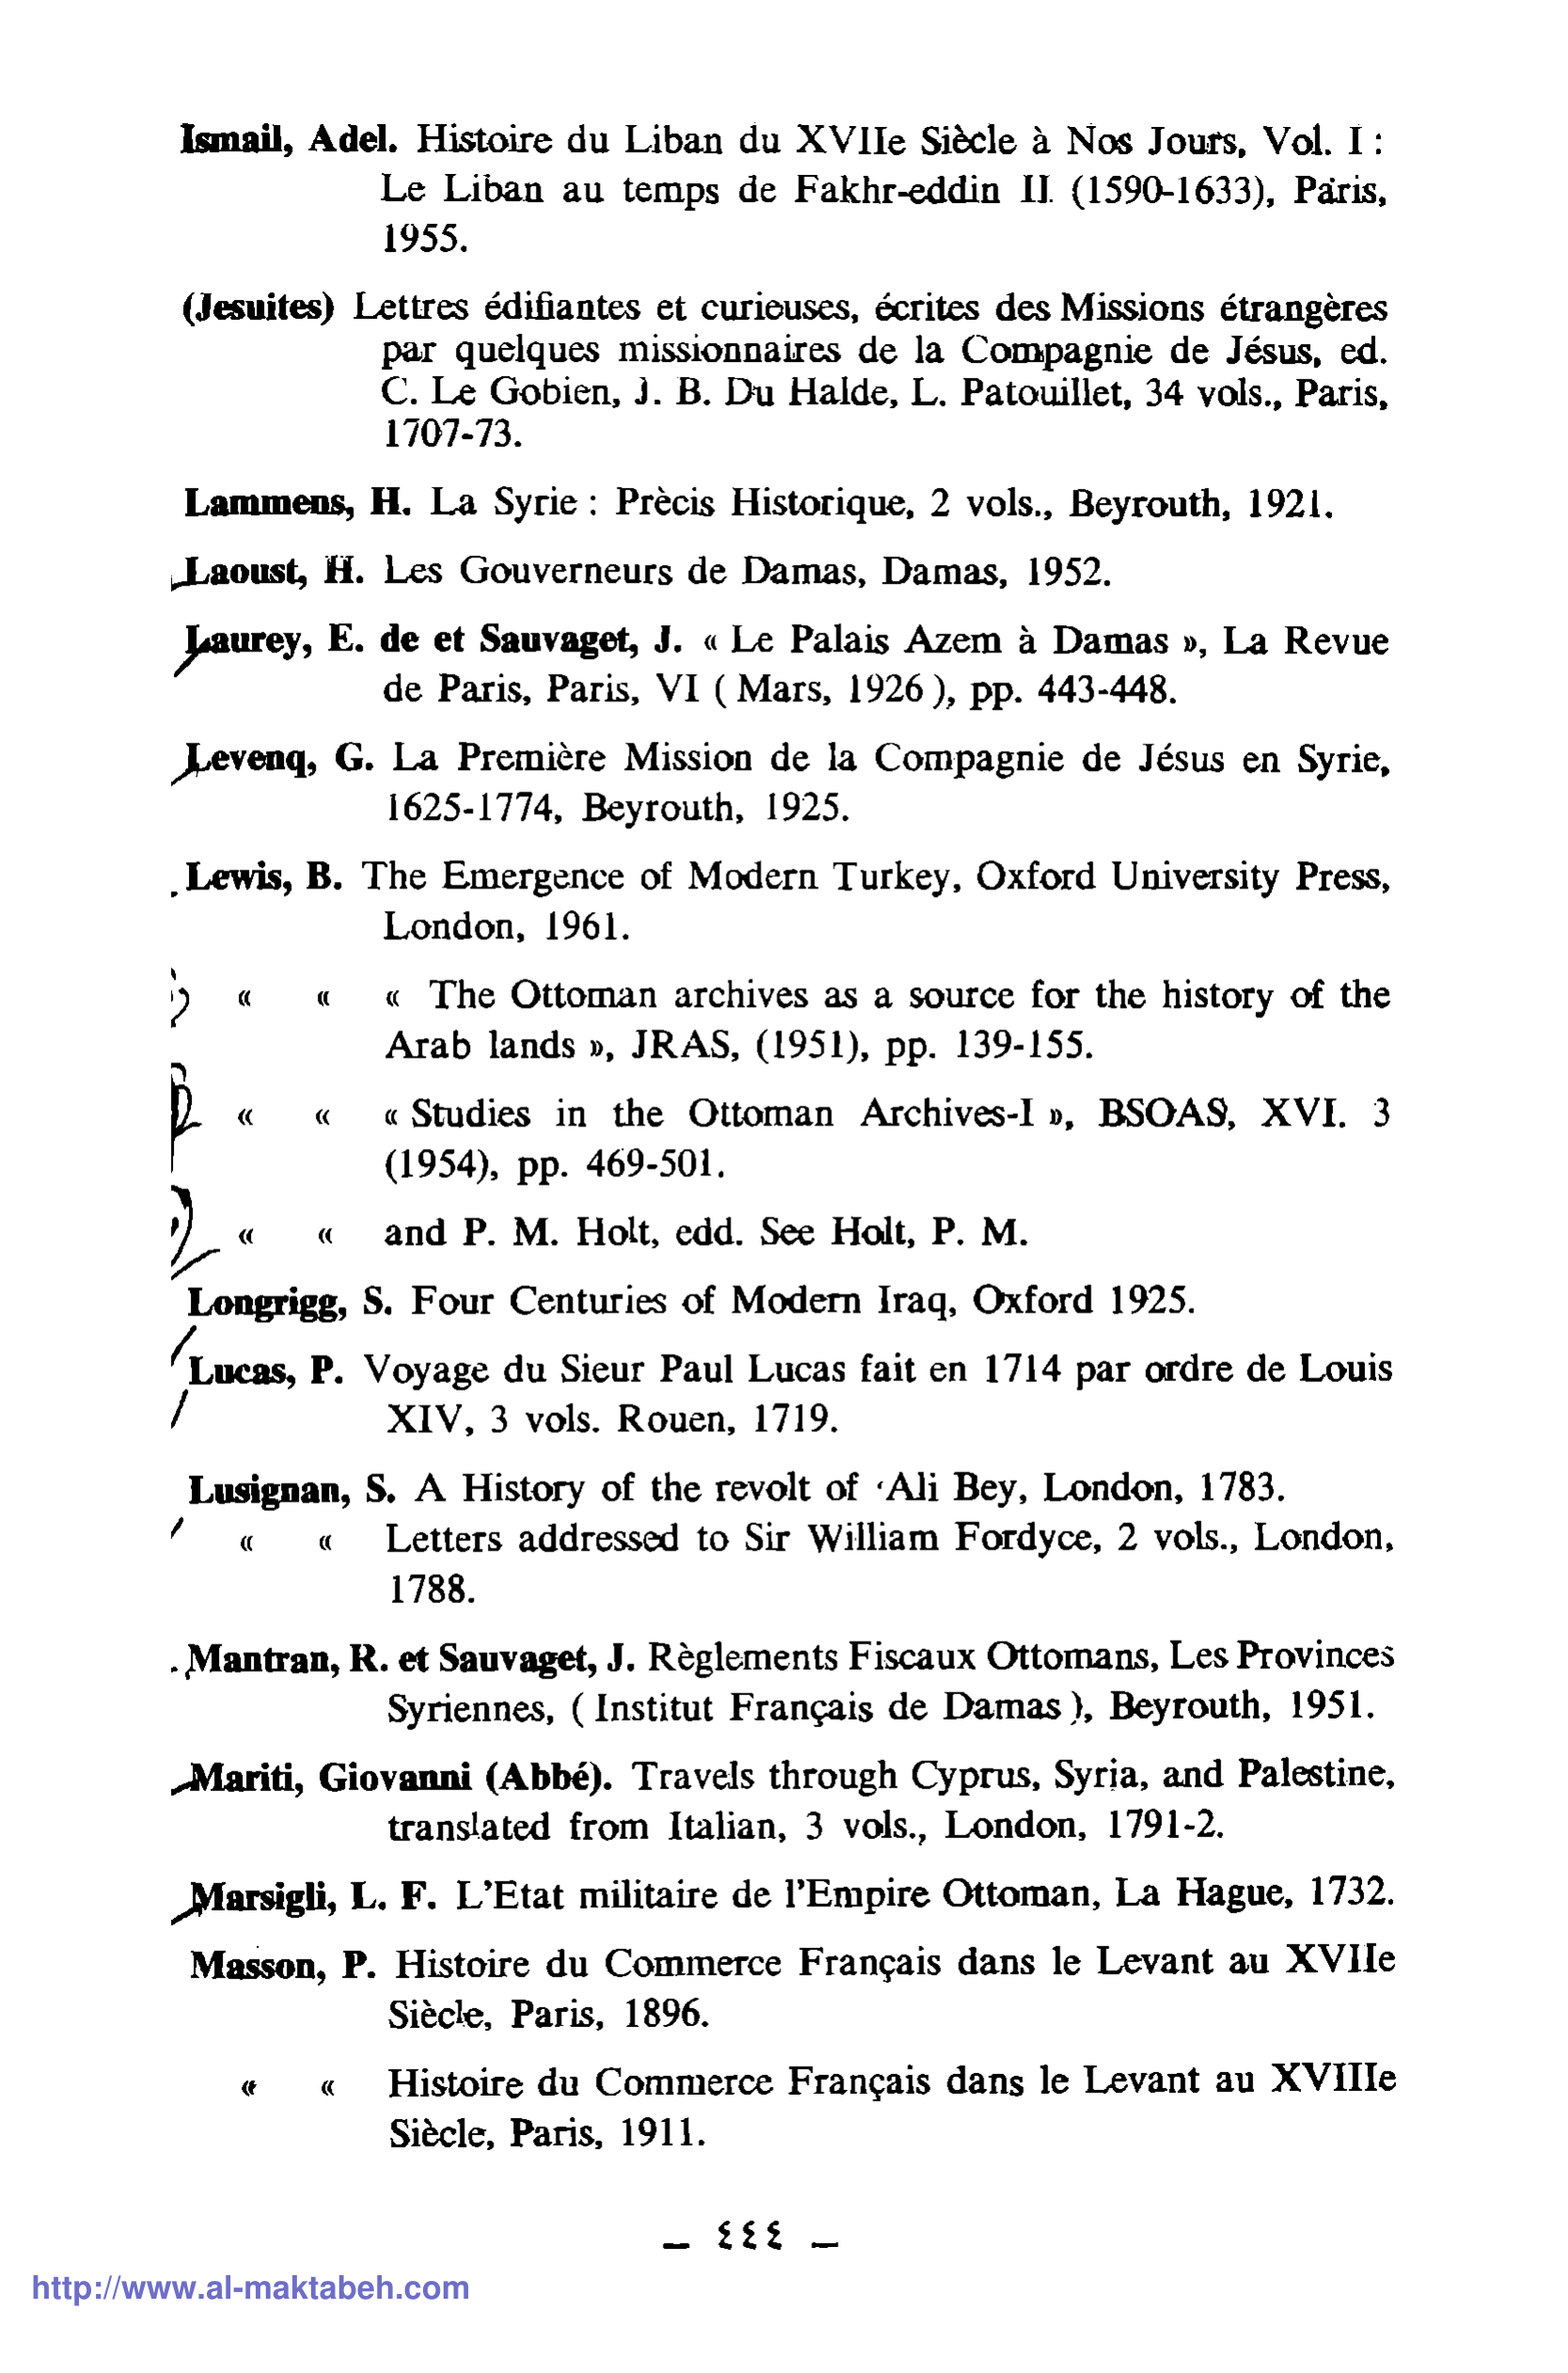 Ismail, Adel. Histoire du Liban du XVIIe Siècle à Nos Jours, Vol. I :
Le Liban au temps de Fakhr-eddin II. (1590-1633), Paris,
1955.
(Jesuites) Lettres édifiantes et curieuses, écrites des Missions étrangères
par quelques missionnaires de la Compagnie de Jésus, ed.
C. Le Gobien, J. B. Du Halde, L. Patouillet, 34 vols., Paris,
1707-73.
Lammens, H. La Syrie : Prècis Historique, 2 vols., Beyrouth, 1921.
Laoust, H. Les Gouverneurs de Damas, Damas, 1952.
Laurey, E. de et Sauvaget, J. « Le Palais Azem à Damas », La Revue
de Paris, Paris, VI ( Mars, 1926 ), pp. 443-448.
Levenq, G. La Première Mission de la Compagnie de Jésus en Syrie,
1625-1774, Beyrouth, 1925.
Lewis, B. The Emergence of Modern Turkey, Oxford University Press,
London, 1961.
« « « The Ottoman archives as a source for the history of the
Arab lands », JRAS, (1951), pp. 139-155.
« « « Studies in the Ottoman Archives-I », BSOAS, XVI. 3
(1954), pp. 469-501.
« « and P. M. Holt, edd. See Holt, P. M.
Longrigg, S. Four Centuries of Modern Iraq, Oxford 1925.
Lucas, P. Voyage du Sieur Paul Lucas fait en 1714 par ordre de Louis
XIV, 3 vols. Rouen, 1719.
Lusignan, S. A History of the revolt of ‘Ali Bey, London, 1783.
« « Letters addressed to Sir William Fordyce, 2 vols., London,
1788.
Mantran, R. et Sauvaget, J. Règlements Fiscaux Ottomans, Les Provinces
Syriennes, ( Institut Français de Damas ), Beyrouth, 1951.
Mariti, Giovanni (Abbé). Travels through Cyprus, Syria, and Palestine,
translated from Italian, 3 vols., London, 1791-2.
Marsigli, L. F. L’Etat militaire de l’Empire Ottoman, La Hague, 1732.
Masson, P. Histoire du Commerce Français dans le Levant au XVIIe
Siècle, Paris, 1896.
« « Histoire du Commerce Français dans le Levant au XVIIIe
Siècle, Paris, 1911.
– ٤٤٤ –
http://www.al-maktabeh.com